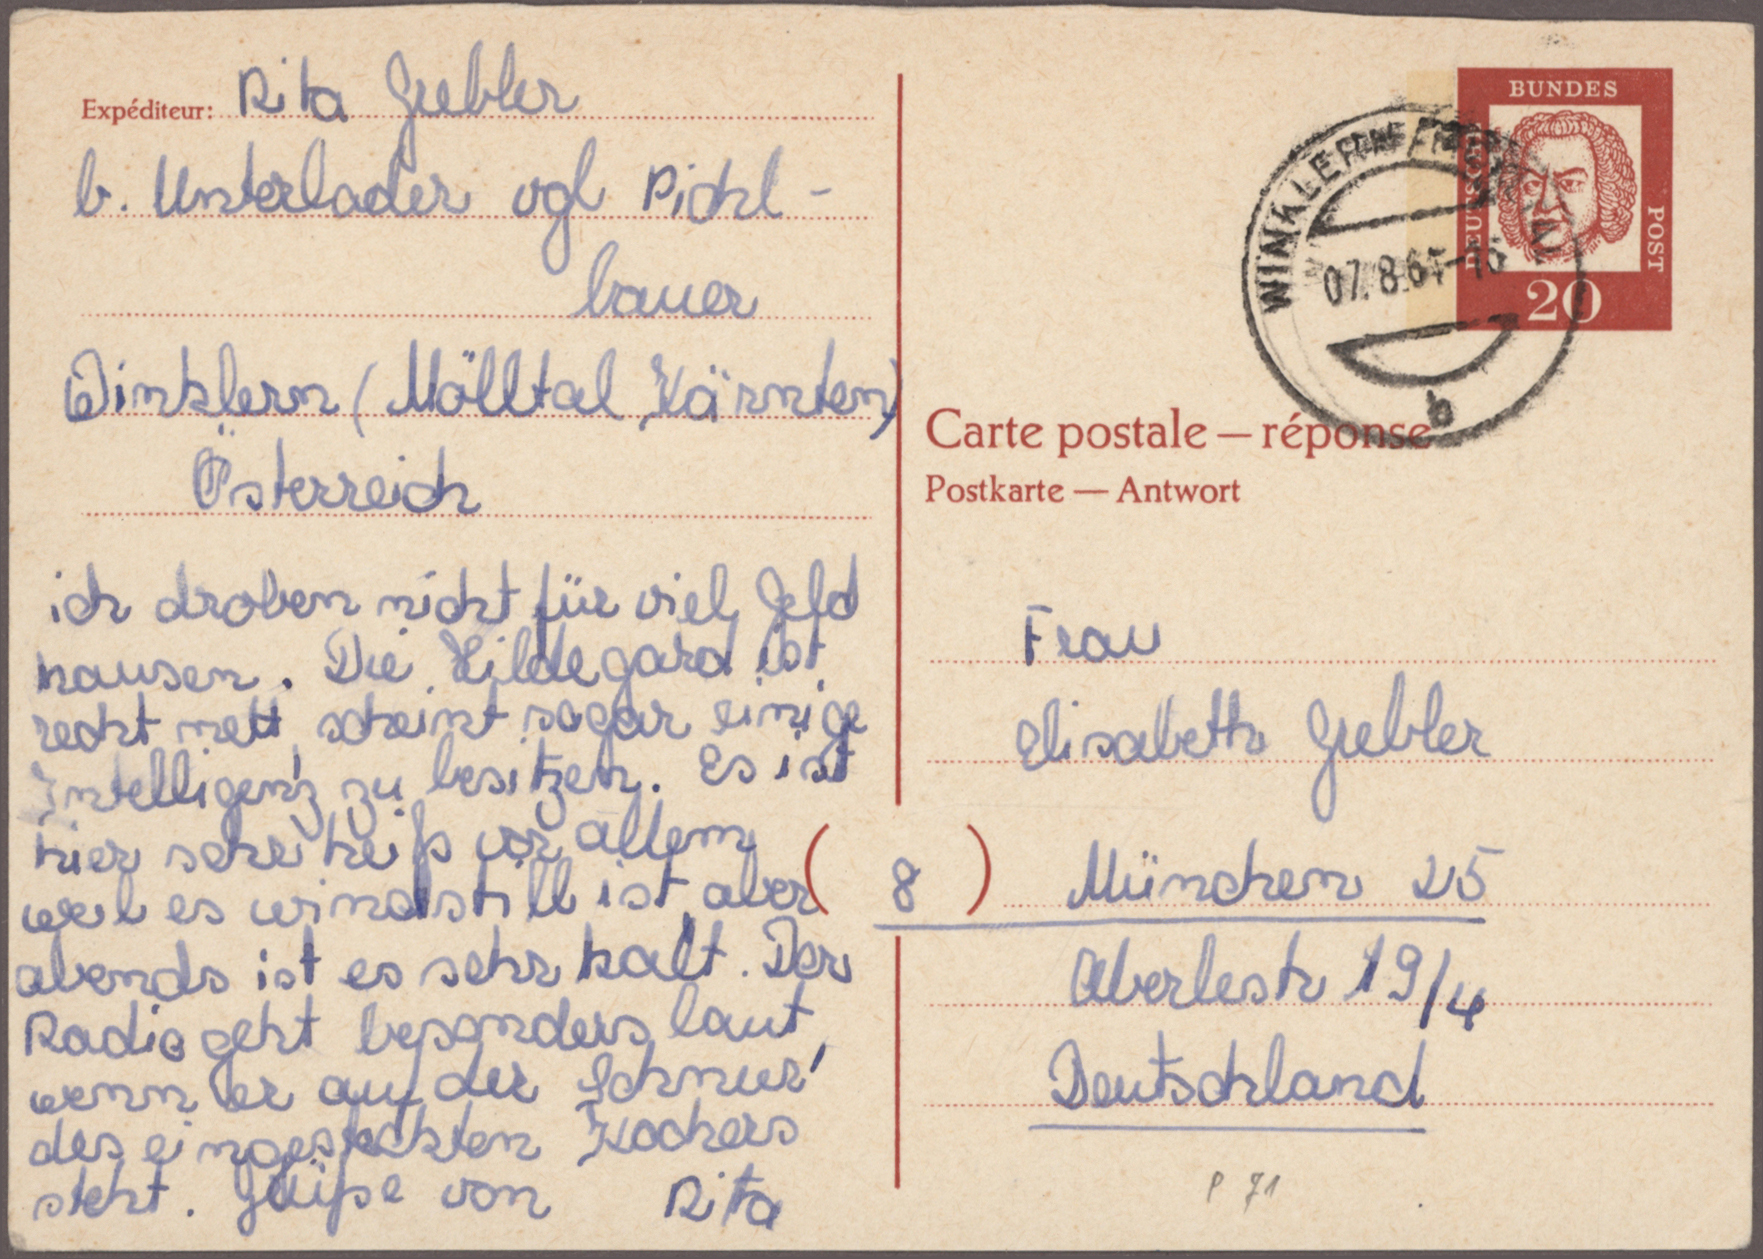 Expéditeur: Rita Giebler
b. Unterlader vgl Pickl-
bauer
Winklern (Mölltal Kärnten)
Österreich
ich droben nicht für viel Geld
hausen. Die Hildegard ist
recht nett scheint sogar einige
Intelligenz zu besitzen. Es ist
hier sehr heiß vor allem
weil es windstill ist, aber
abends ist es sehr kalt. Der
Radio geht besonders laut
wenn er auf der Schnur
des eingesteckten Kochers
steht. Grüße von Rita
BUNDES
DEUTSCHE
POST
20
WINKLERN
07.8.61-16
b
Carte postale — réponse
Postkarte — Antwort
Frau
Elisabeth Giebler
( 8 ) München 25
Aberlestr 19/4
Deutschland
P 71